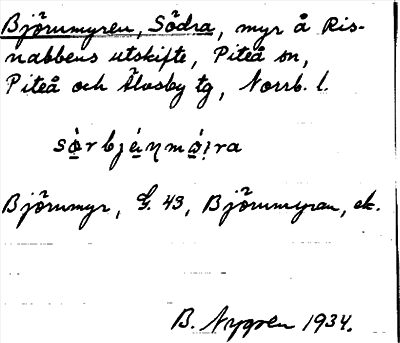 Björnmyren, Södra, myr å Ris-
nabbens utskifte, Piteå sn,
Piteå och Älvsby tg, Norrb. l.
Björnmyr, G. 43, Björnmyran, ek.
B. Nygren 1934.